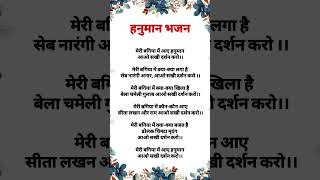 हनुमान भजन
मेरी बगिया में आए हनुमान
आओ सखी दर्शन करो।।
मेरी बगिया में क्या-क्या लगा है
सेब नारंगी अनार, आओ सखी दर्शन करो ।।
मेरी बगिया में क्या-क्या खिला है
बेला चमेली गुलाब आओ सखी दर्शन करो।।
मेरी बगिया में कौन-कौन आए
सीता लखन और राम आओ सखी दर्शन करो।।
मेरी बगिया में क्या-क्या बजत है
ढोलक चिमटा मृदंग
आओ सखी दर्शन करो।।
मेरी बगिया में आए हनुमान
आओ सखी दर्शन करो।।